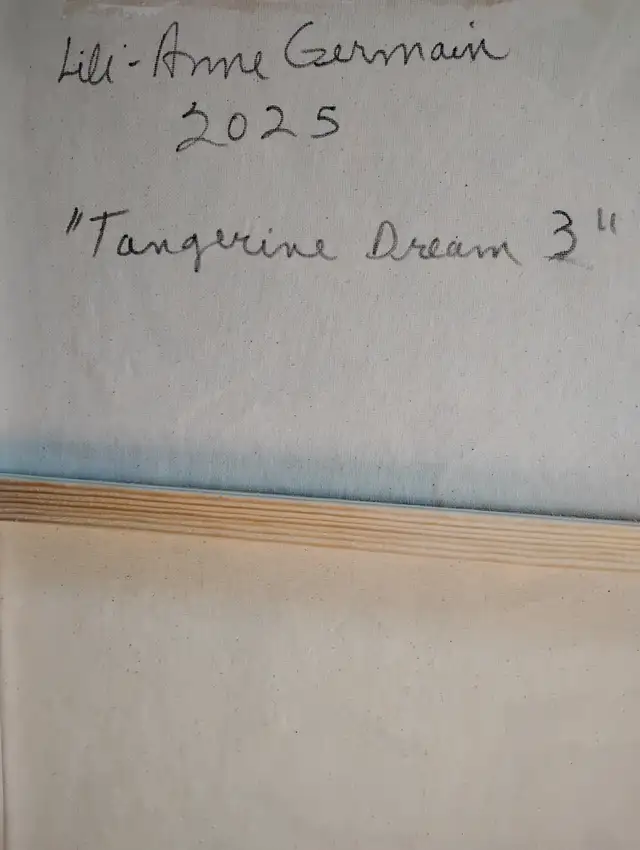 Lili-Anne Germain
2025
"Tangerine Dream 3"